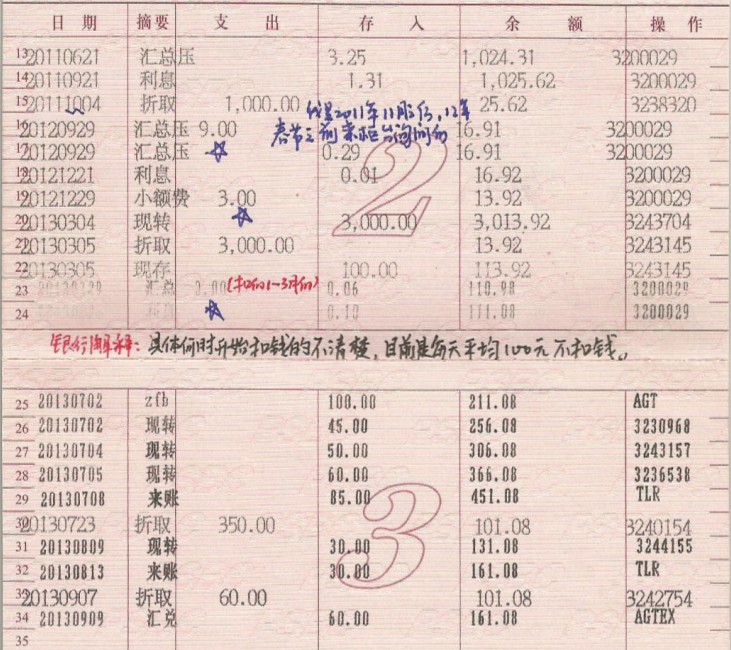 日 期 摘要 支 出 存 入 余 额 操 作
13 20110621 汇总压 3.25 1,024.31 3200029
14 20110921 利息 1.31 1,025.62 3200029
15 20111004 折取 1,000.00 25.62 3238320
2011年11月份,12年
16 20120929 汇总压 9.00 16.91 3200029
春节之前来柜台询问的
17 20120929 汇总压 0.29 16.91 3200029
18 20121221 利息 0.01 16.92 3200029
19 20121229 小额费 3.00 13.92 3200029
20 20130304 现转 3,000.00 3,013.92 3243704
21 20130305 折取 3,000.00 13.92 3243145
22 20130305 现存 100.00 113.92 3243145
23 汇总 3.00 (扣的1-3月的) 0.06 110.98 3200029
24 0.10 111.08 3200029
2
银行解释:具体何时开始扣钱的不清楚,目前是每天平均100元不扣钱。
25 20130702 zfb 100.00 211.08 AGT
26 20130702 现转 45.00 256.08 3230968
27 20130704 现转 50.00 306.08 3243157
28 20130705 现转 60.00 366.08 3236538
29 20130708 来账 85.00 451.08 TLR
30 20130723 折取 350.00 101.08 3240154
31 20130809 现转 30.00 131.08 3244155
32 20130813 来账 30.00 161.08 TLR
33 20130907 折取 60.00 101.08 3242754
34 20130909 汇兑 60.00 161.08 AGTEX
35
3